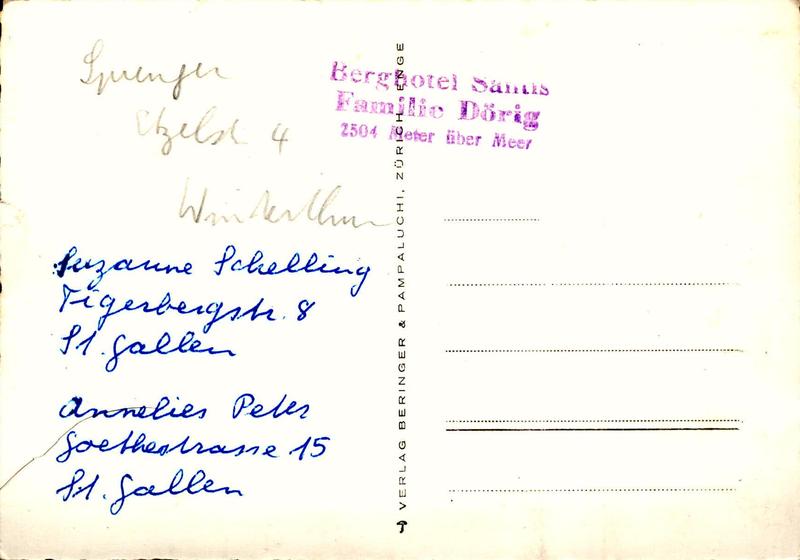 Sprenger
Etzelstr 4
Winterthur
Suzanne Schelling
Tigerbergstr. 8
St. Gallen
Annelies Peter
Goethestrasse 15
St. Gallen
VERLAG BERINGER & PAMPALUCHI, ZÜRICH-ENGE
Berghotel Säntis
Familie Dörig
2504 Meter über Meer